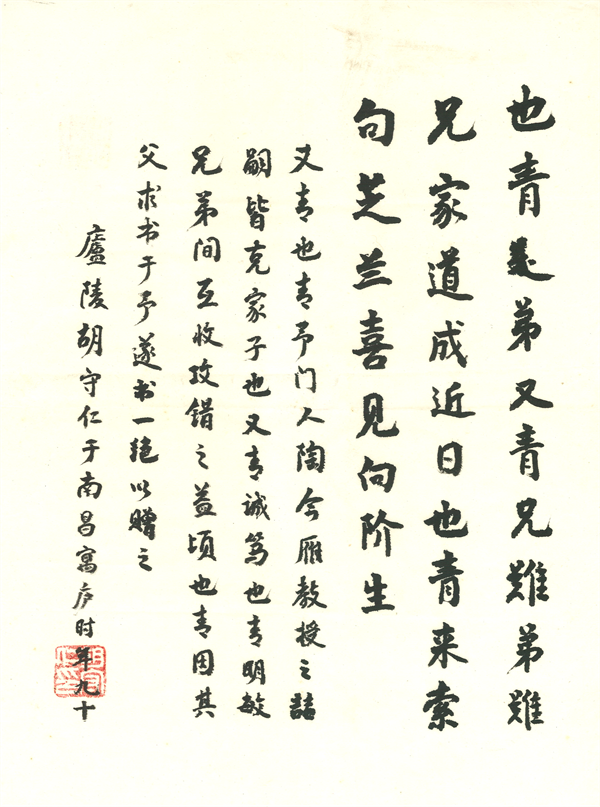 也青是弟又青兄難弟難
兄家道成近日也青来索
句芝兰喜见向阶生
又青也青予门人陶今雁教授之喆
嗣皆克家子也又青诚笃也青明敏
兄弟间互收攻错之益顷也青因其
父求书于予遂书一绝以赠之
廬陵胡守仁于南昌寓庐时年九十